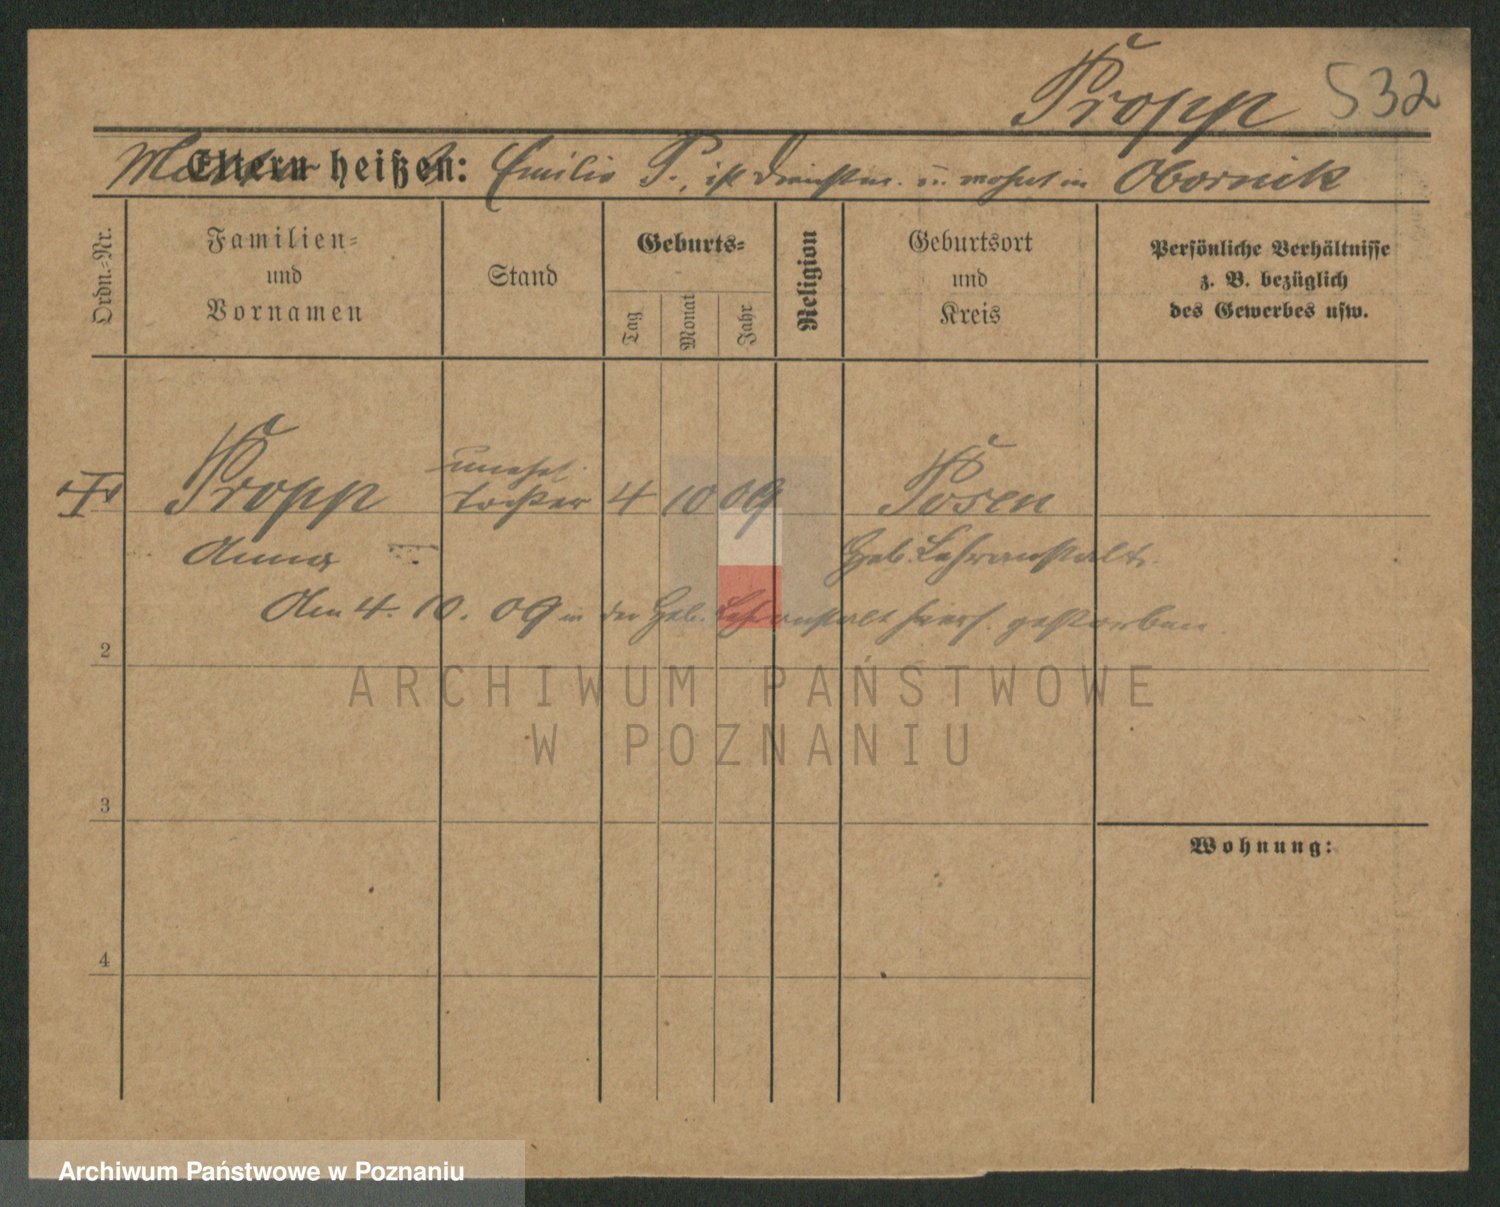 Propp 532
Mutter Eltern heißen: Emilie P., ist Dienstm. u. wohnt in Obornik
Ordn.-Nr.
Familien-
und
Vornamen
Stand
Geburts-
Tag
Monat
Jahr
Religion
Geburtsort
und
Kreis
Persönliche Verhältnisse
z. B. bezüglich
des Gewerbes usw.
unehel.
Propp Tochter 4 10 09 Posen
Anna Heb. Lehranstalt.
Am 4. 10. 09 in der Heb. Lehranstalt hiers. gestorben.
2
ARCHIWUM PAŃSTWOWE
W POZNANIU
3
Wohnung:
4
Archiwum Państwowe w Poznaniu